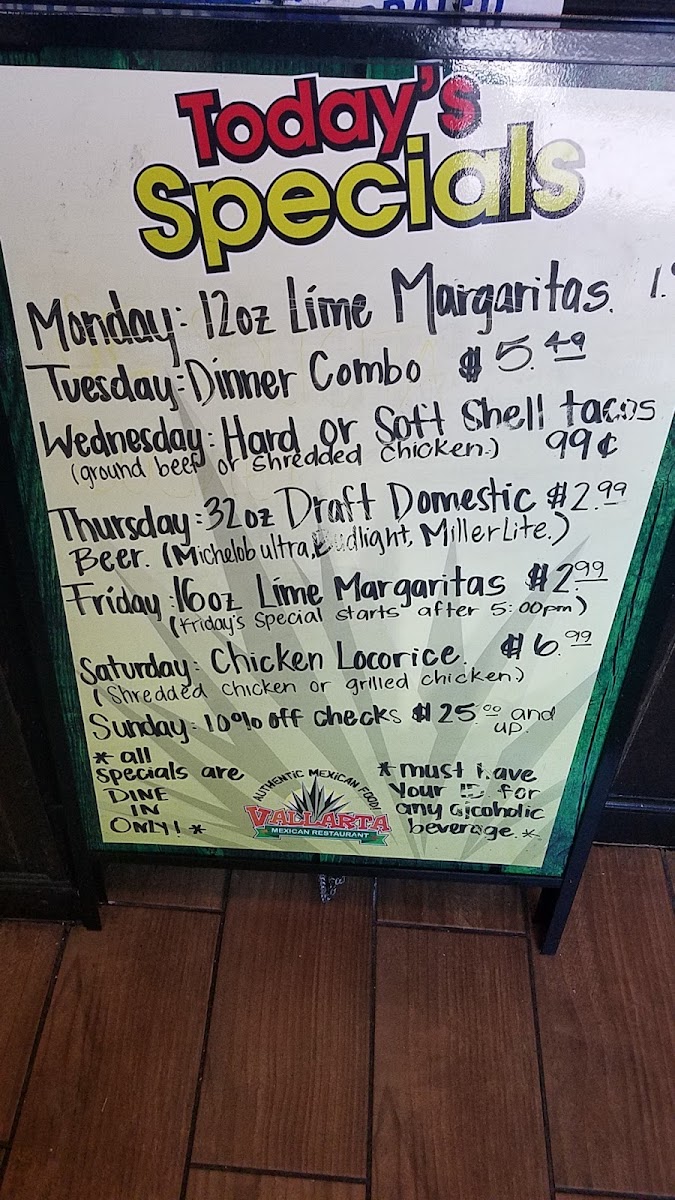 Today's
Specials
Monday: 12oz Lime Margaritas. 1.
Tuesday: Dinner Combo $5.49
Wednesday: Hard or Soft Shell tacos
(ground beef or shredded chicken.) 99¢
Thursday: 32oz Draft Domestic $2.99
Beer. (Michelob ultra, Budlight, Miller Lite.)
Friday: 16oz Lime Margaritas $2.99
(Friday's Special starts after 5:00pm)
Saturday: Chicken Locorice. $6.99
(Shredded chicken or grilled chicken.)
Sunday: 10% off checks $25.00 and
up.
* all
specials are
DINE
IN
ONLY! *
AUTHENTIC MEXICAN FOOD!
VALLARTA
MEXICAN RESTAURANT
* must have
Your ID for
any alcoholic
beverage. *